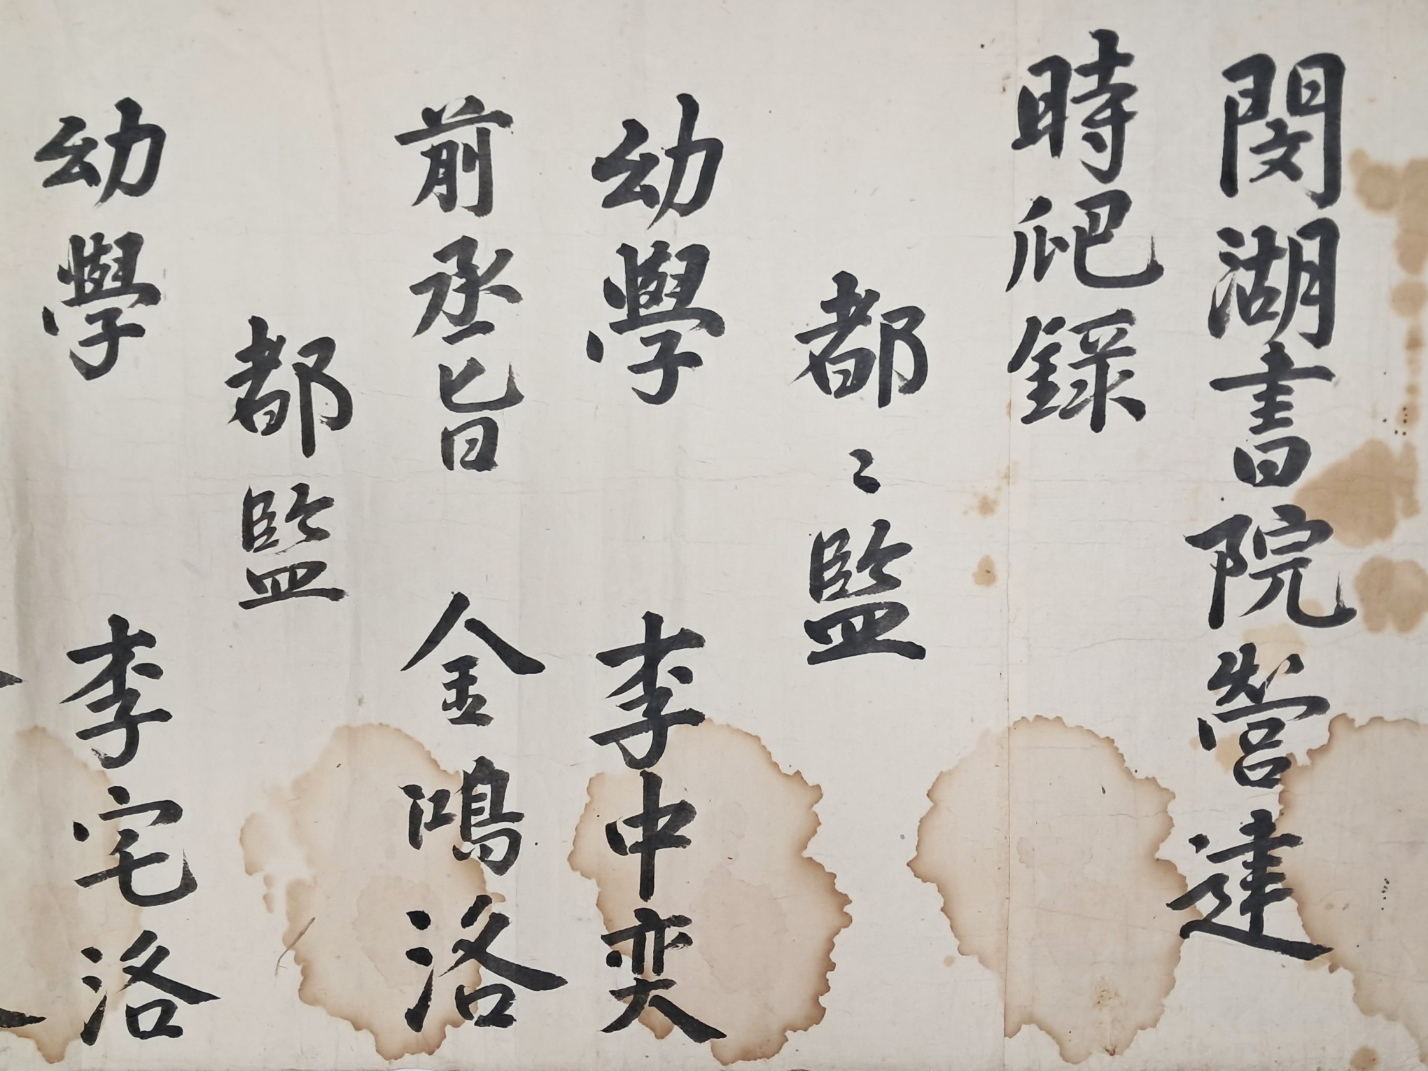 閔湖書院營建
時爬錄
都〻監
幼學 李中奕
前丞旨 金鴻洛
都監
幼學 李宅洛